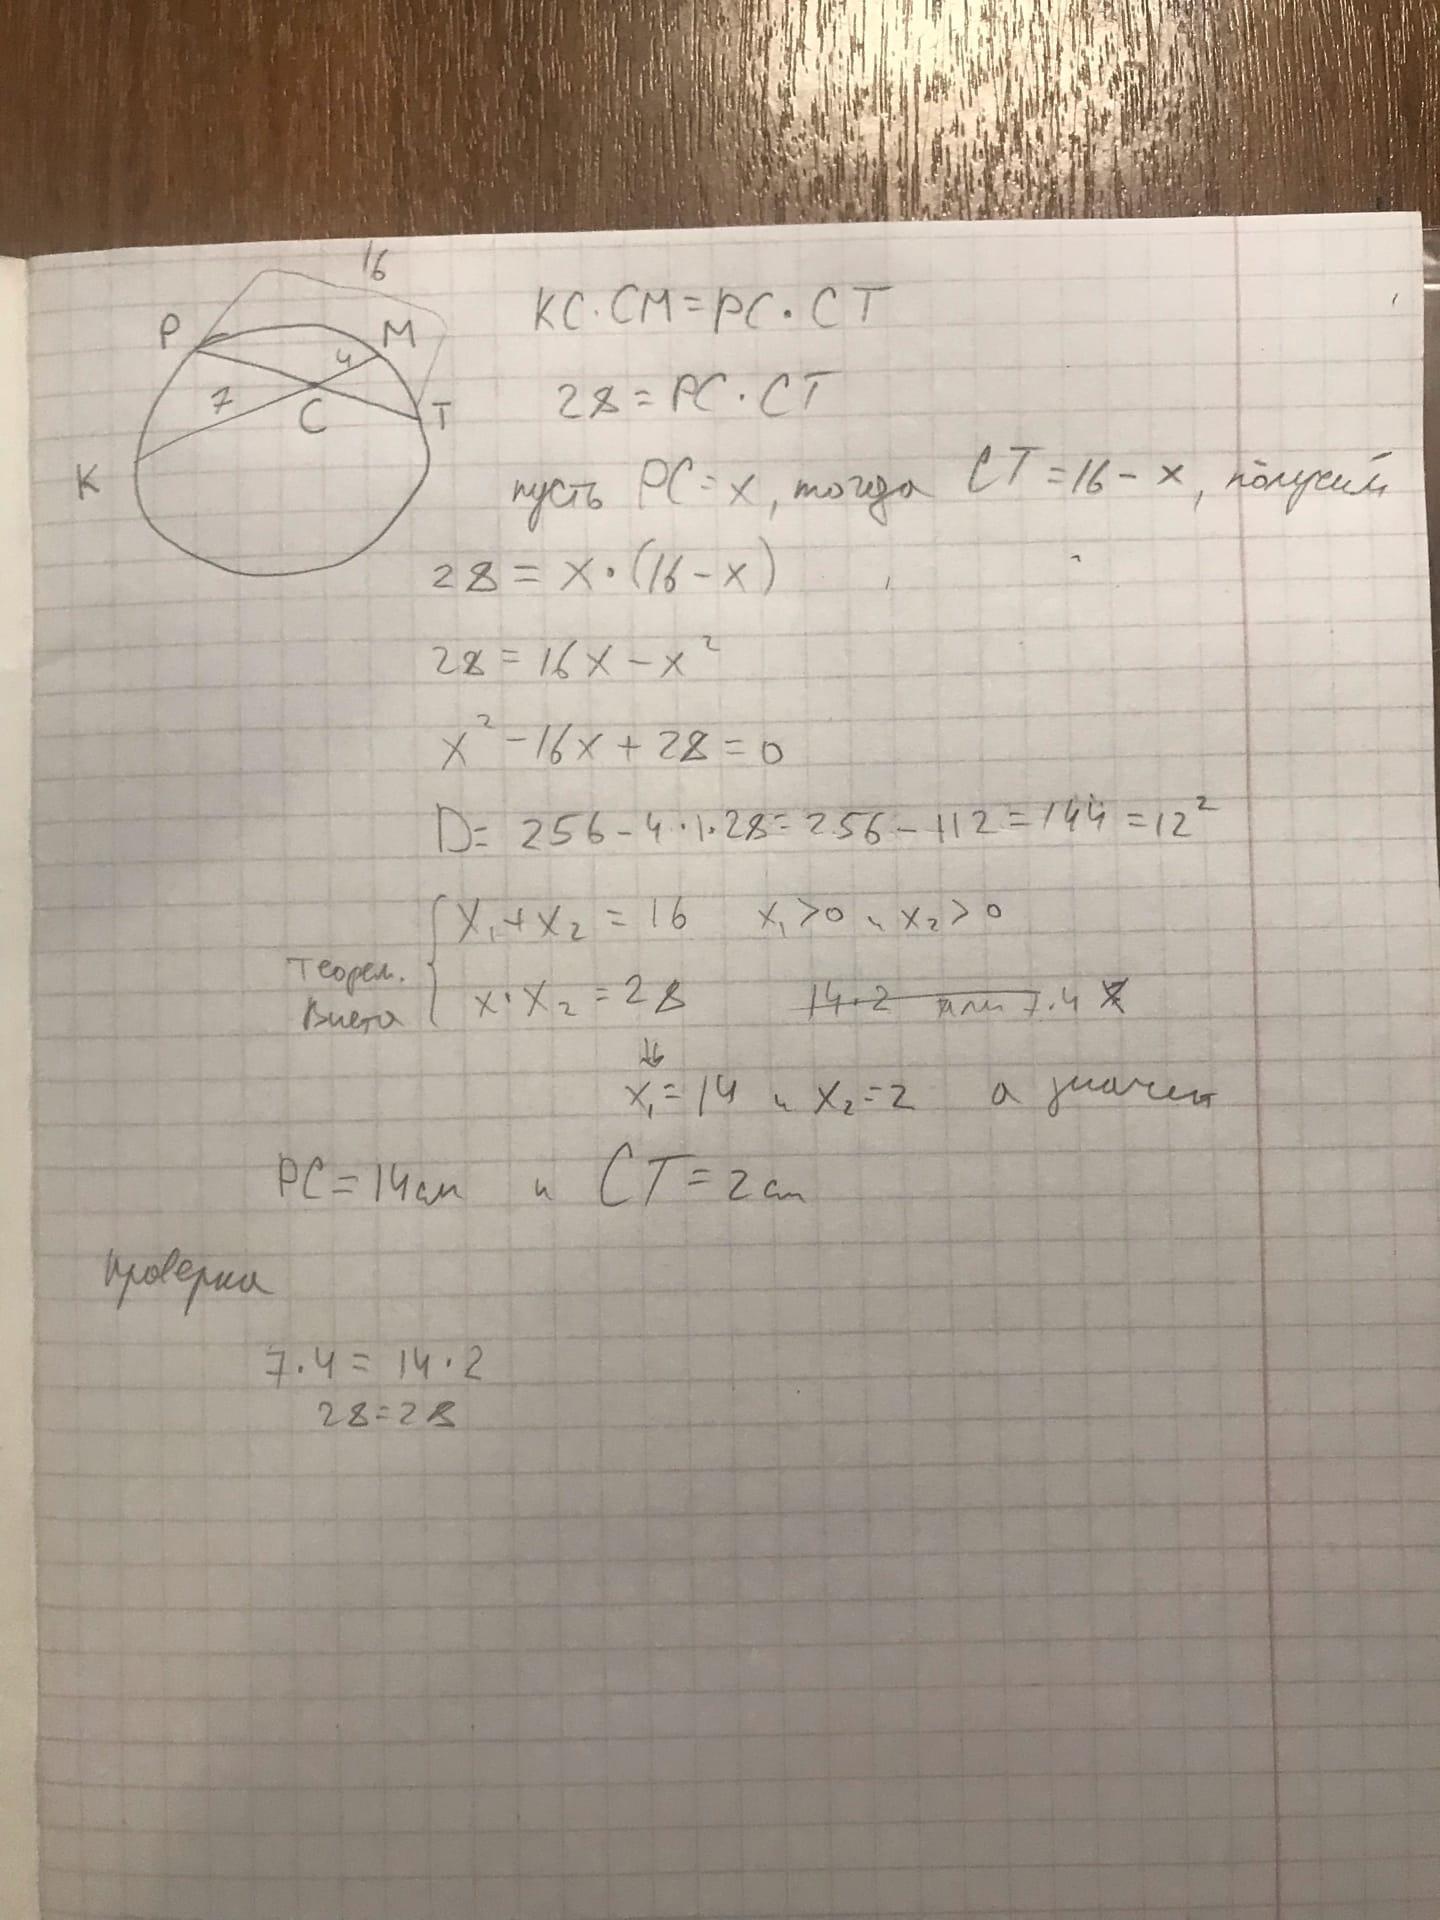 16
P
M
4
7
C
T
K
KC·CM=PC·CT
28=PC·CT
пусть PC=x, тогда CT=16-x, получим
28=x·(16-x)
28=16x-x²
x²-16x+28=0
D=256-4·1·28=256-112=144=12²
x₁+x₂=16 x₁>0 и x₂>0
Теорем.
Виета
x·x₂=28 14·2 или 7·4
x₁=14 и x₂=2 а значит
PC=14см и CT=2см
проверка
7·4=14·2
28=28